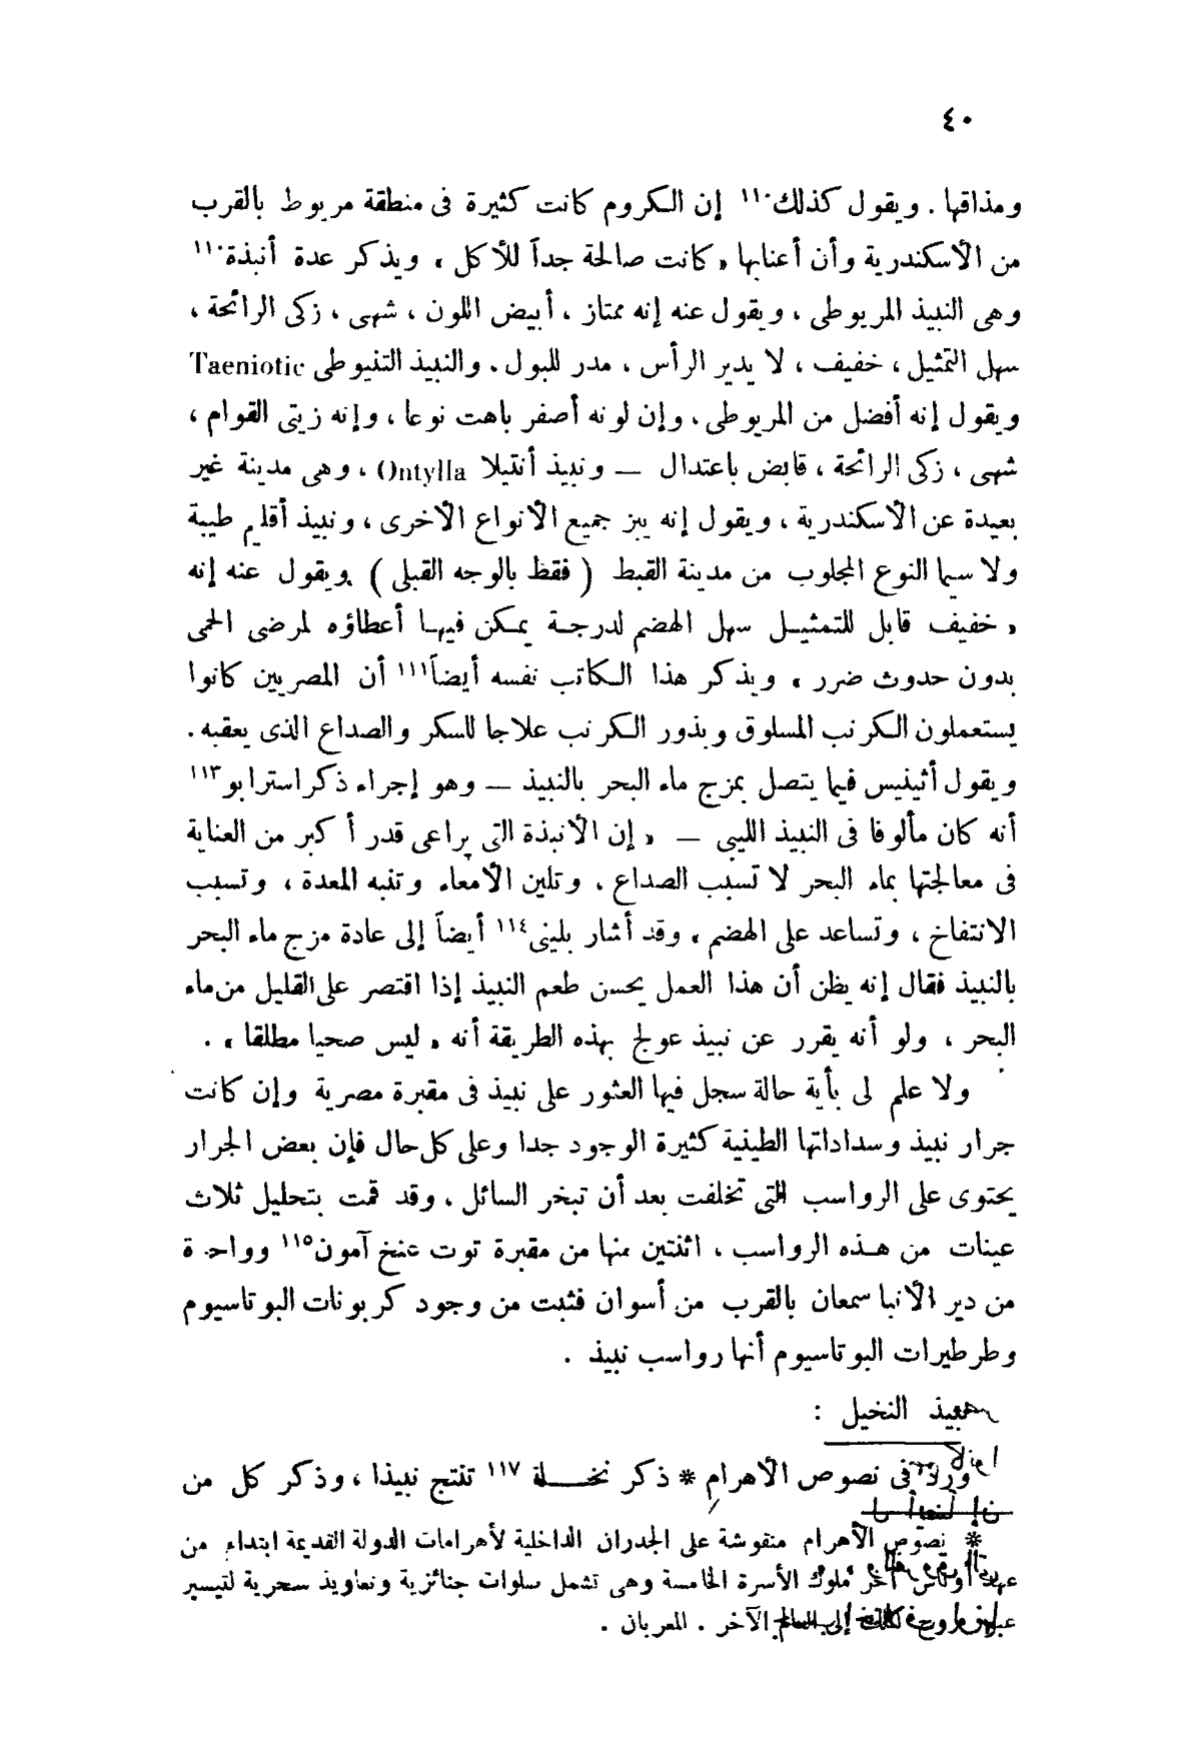 ٤٠
ومذاقها . ويقول كذلك١١٠ إن الكروم كانت كثيرة فى منطقة مريوط بالقرب
من الأسكندرية وأن أعنابها « كانت صالحة جداً للأكل » ويذكر عدة أنبذة١١٠
وهى النبيذ المريوطى ، ويقول عنه إنه ممتاز ، أبيض اللون ، شهى ، زكى الرائحة ،
سهل التمثيل ، خفيف ، لا يدير الرأس ، مدر للبول . والنبيذ التنيوطى Taeniotic
ويقول إنه أفضل من المريوطى ، وإن لونه أصفر باهت نوعا ، وإنه زيتى القوام ،
شهى ، زكى الرائحة ، قابض باعتدال — ونبيذ أنتيلا Ontylla ، وهى مدينة غير
بعيدة عن الأسكندرية ، ويقول إنه يبز جميع الأنواع الأخرى ، ونبيذ أقليم طيبة
ولا سيما النوع المجلوب من مدينة القبط ( فقظ بالوجه القبلى ) ويقول عنه إنه
« خفيف قابل للتمثيل سهل الهضم لدرجة يمكن فيها أعطاؤه لمرضى الحمى
بدون حدوث ضرر » ويذكر هذا الكاتب نفسه أيضاً١١١ أن المصريين كانوا
يستعملون الكرنب المسلوق وبذور الكرنب علاجا للسكر والصداع الذى يعقبه .
ويقول أثينيس فيما يتصل بمزج ماء البحر بالنبيذ — وهو إجراء ذكر استرابو١١٣
أنه كان مألوفا فى النبيذ الليبى — « إن الأنبذة التى يراعى قدر أكبر من العناية
فى معالجتها بماء البحر لا تسبب الصداع . وتلين الأمعاء وتنبه المعدة ، وتسبب
الانتفاخ ، وتساعد على الهضم » وقد أشار بلينى١١٤ أيضاً إلى عادة مزج ماء البحر
بالنبيذ فقال إنه يظن أن هذا العمل يحسن طعم النبيذ إذا اقتصر على القليل من ماء
البحر ، ولو أنه يقرر عن نبيذ عولج بهذه الطريقة أنه « ليس صحيا مطلقا » .
ولا علم لى بأية حالة سجل فيها العثور على نبيذ فى مقبرة مصرية وإن كانت
جرار نبيذ وسداداتها الطينية كثيرة الوجود جدا وعلى كل حال فإن بعض الجرار
يحتوى على الرواسب التى تخلفت بعد أن تبخر السائل . وقد قمت بتحليل ثلاث
عينات من هذه الرواسب ، اثنتين منها من مقبرة توت عنخ آمون١١٥ وواحدة
من دير الأنبا سمعان بالقرب من أسوان فثبت من وجود كربونات البوتاسيوم
وطرطيرات البوتاسيوم أنها رواسب نبيذ .
نبيذ النخيل :
ورد فى نصوص الأهرام * ذكر نخلة ١١٧ تنتج نبيذا ، وذكر كل من
* نصوص الأهرام منقوشة على الجدران الداخلية لأهرامات الدولة القديمة ابتداء من
عهد أوناس آخر ملوك الأسرة الخامسة وهى تشمل صلوات جنائزية وتعاويذ سحرية لتيسير
إلى العالم الآخر . المعربان .